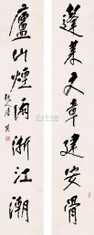 蓬莱文章建安骨
廬山煙雨浙江潮